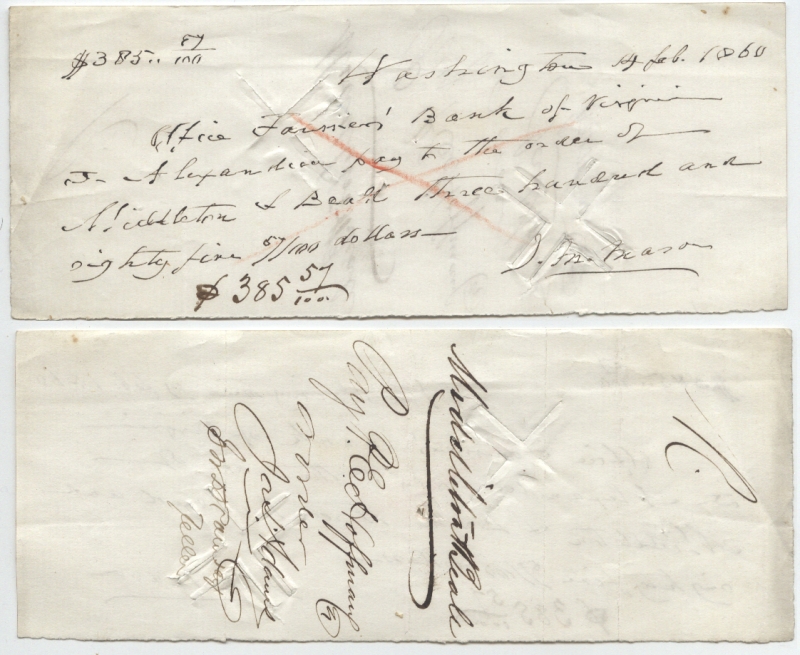 $385.. 57/100
Washington 14 feb. 1860
Office Farmers' Bank of Virginia
In Alexandria pay to the order of
Middleton & Beall three hundred and
eighty five 57/100 dollars—
J. M. Mason
$ 385 57/100
Middleton & Beall
Pay P. E. Hoffman
or order
Teller